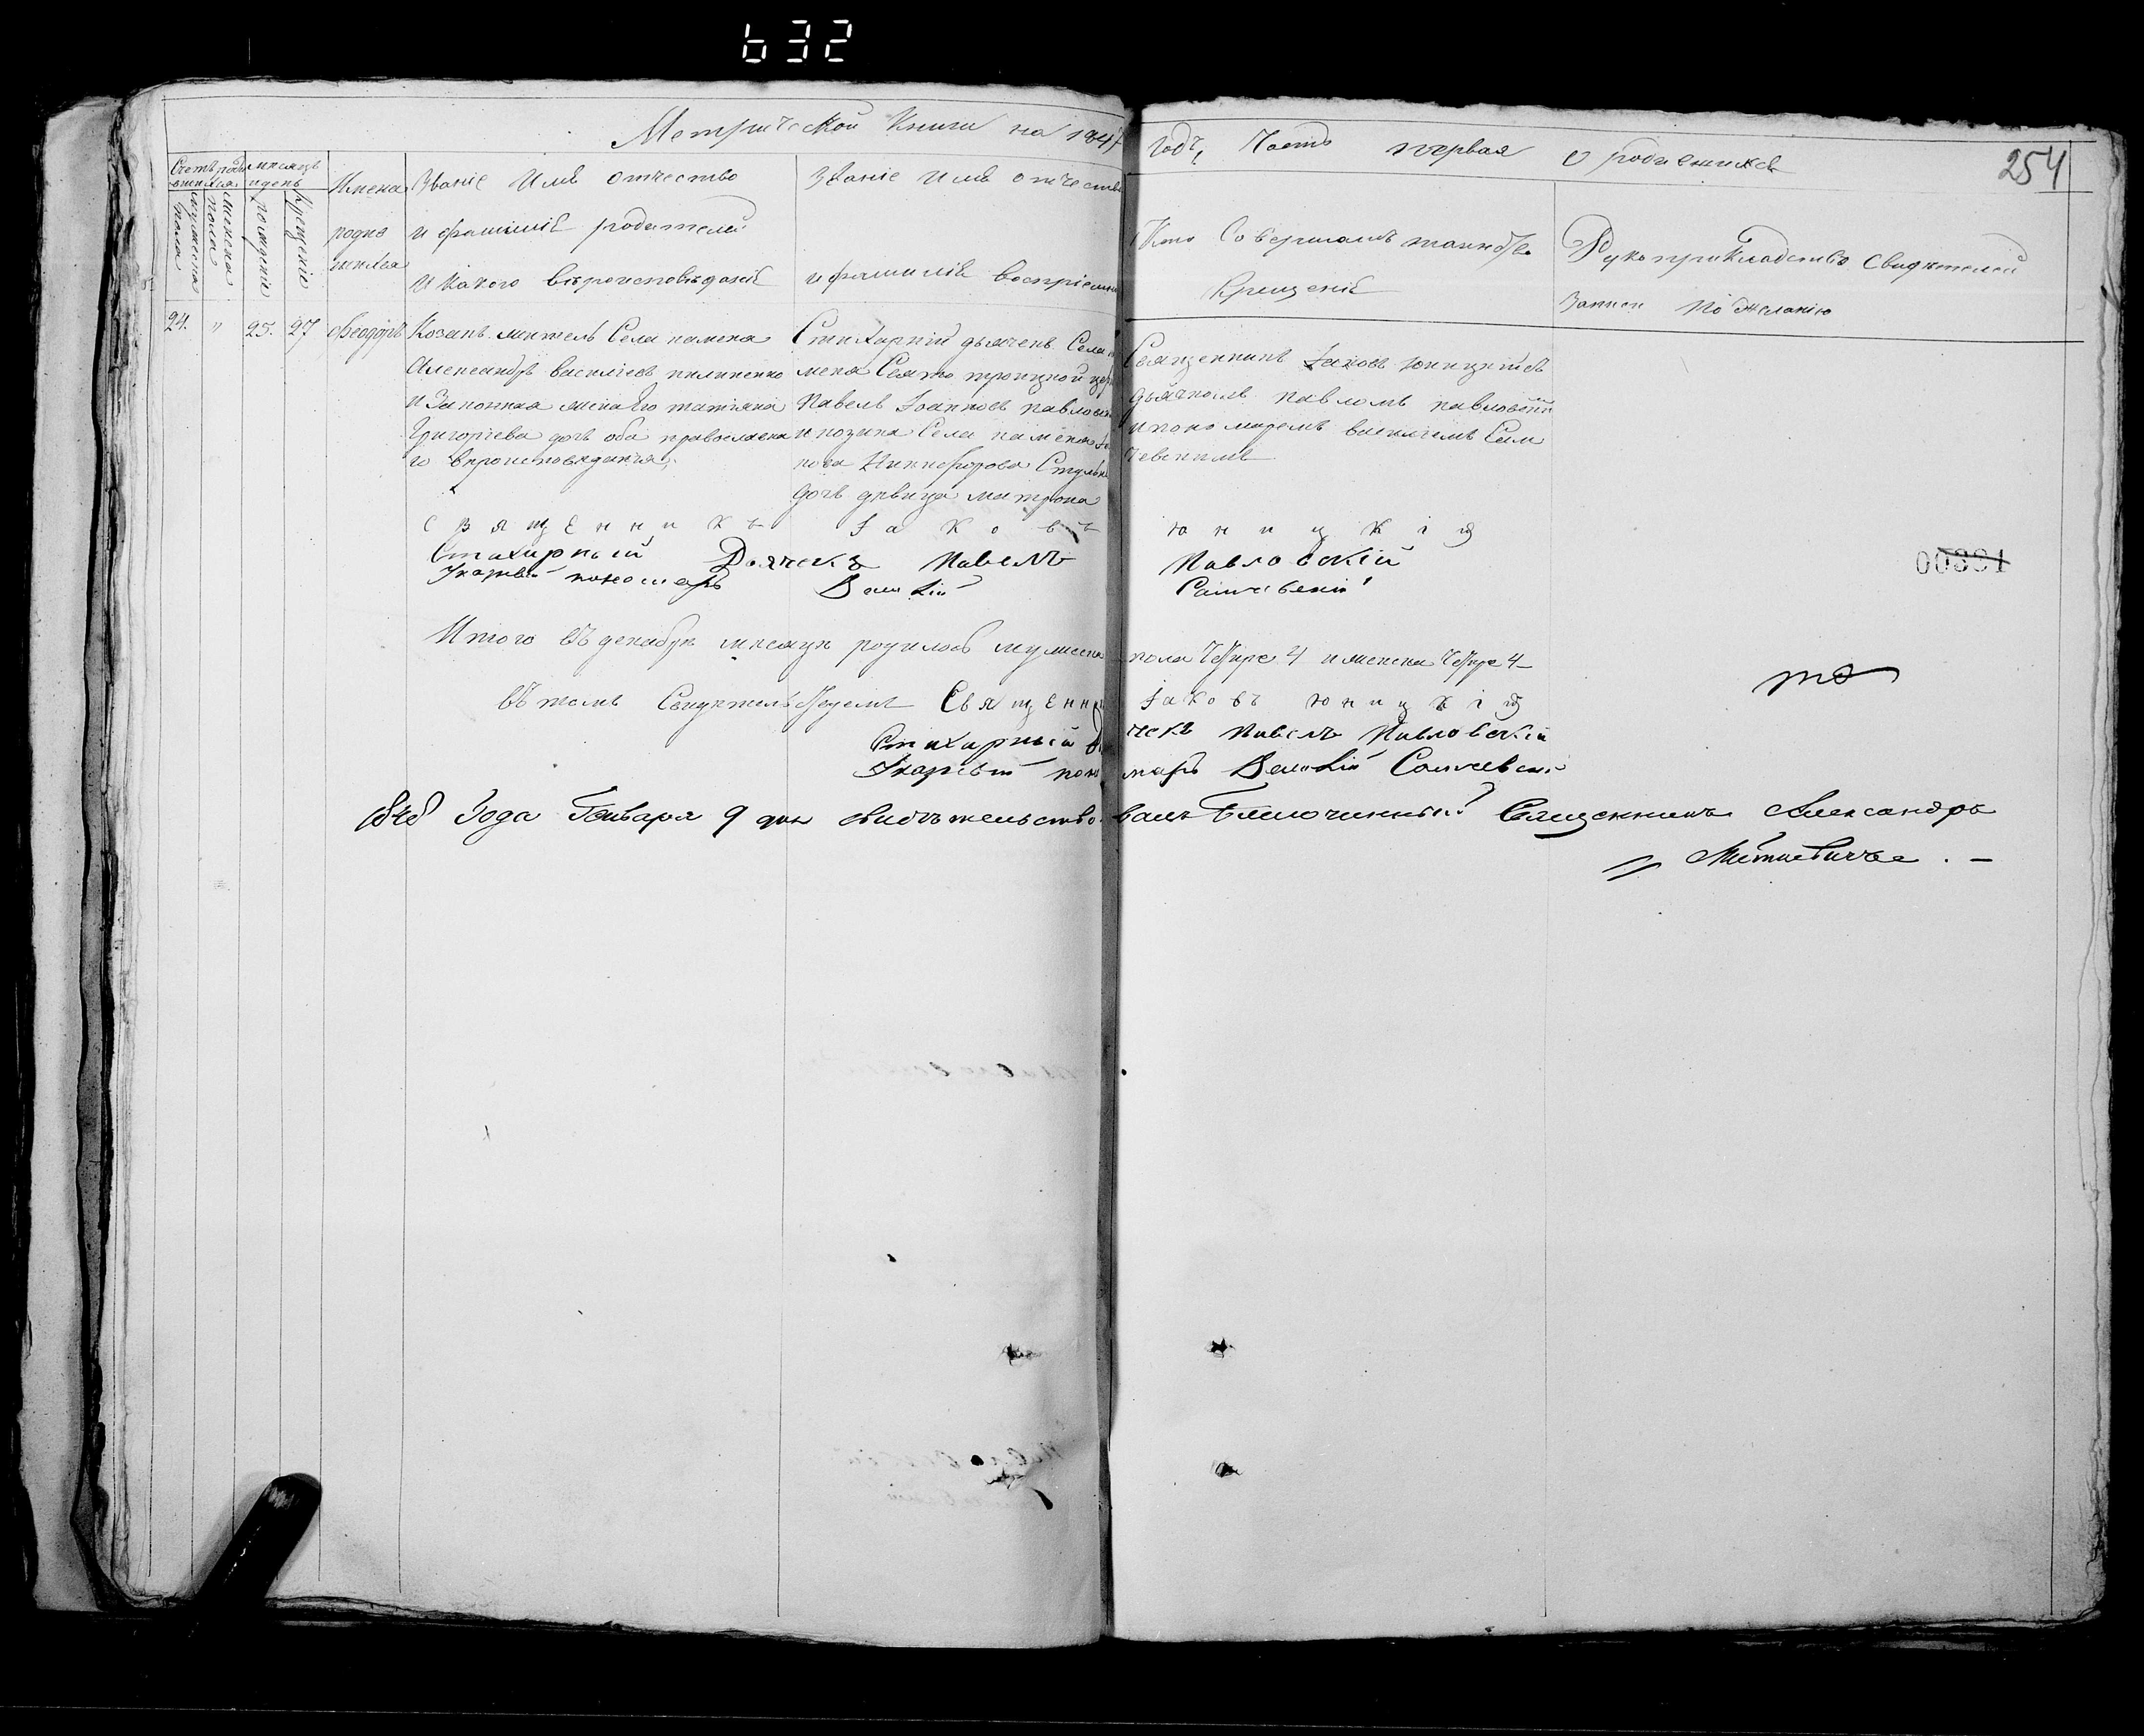 632
Метрической Книги на 1847 Годъ, Часть первая о родившихся
254
Счетъ родившихся
мѣсяцъ и день
мужеска пола
женска пола
рожденіе
крещеніе
Имена родившихся
Званіе Имя отчество
и фамиліе родителей
и какого вѣроисповѣданіе
Званіе Имя отчество
и фамиліе воспріемник
Кто Совершалъ таинство
Крещеніе
Рукоприкладство свидѣтелей
записи по желанію
24. " 25. 27 Феодоръ
Козакъ житель Села
Александръ василіевъ пилипенко
и Законная жена его татіана
Григоріева дочь оба православна
го вѣроисповѣданія.
Стихарній дьячекъ Села
Свято троицкой
Павелъ Іоанновъ павловск
и козака Села
Никифорова
дочь дѣвица матрона
Священникъ Іаковъ Юницкій съ
дьячкомъ павломъ павловским
и пономаремъ василіемъ Сам
чевскимъ
священникъ Іаковъ юницкій
Стихарный Дьячекъ Павелъ Павловскій
Указный пономарь Василій Самчевскій
00331
Итого въ декабрѣ мѣсяцѣ родилось мужеска пола Четыре 4 и женска Четыре 4
въ томъ Свидѣтельствуемъ Священни Іаковъ юницкій
Стихарный дьячекъ Павелъ Павловскій
Указный пономарь Василій Самчевскій
1848 Года Генваря 9 дня свидѣтельствовалъ Благочинный Священникъ Александръ